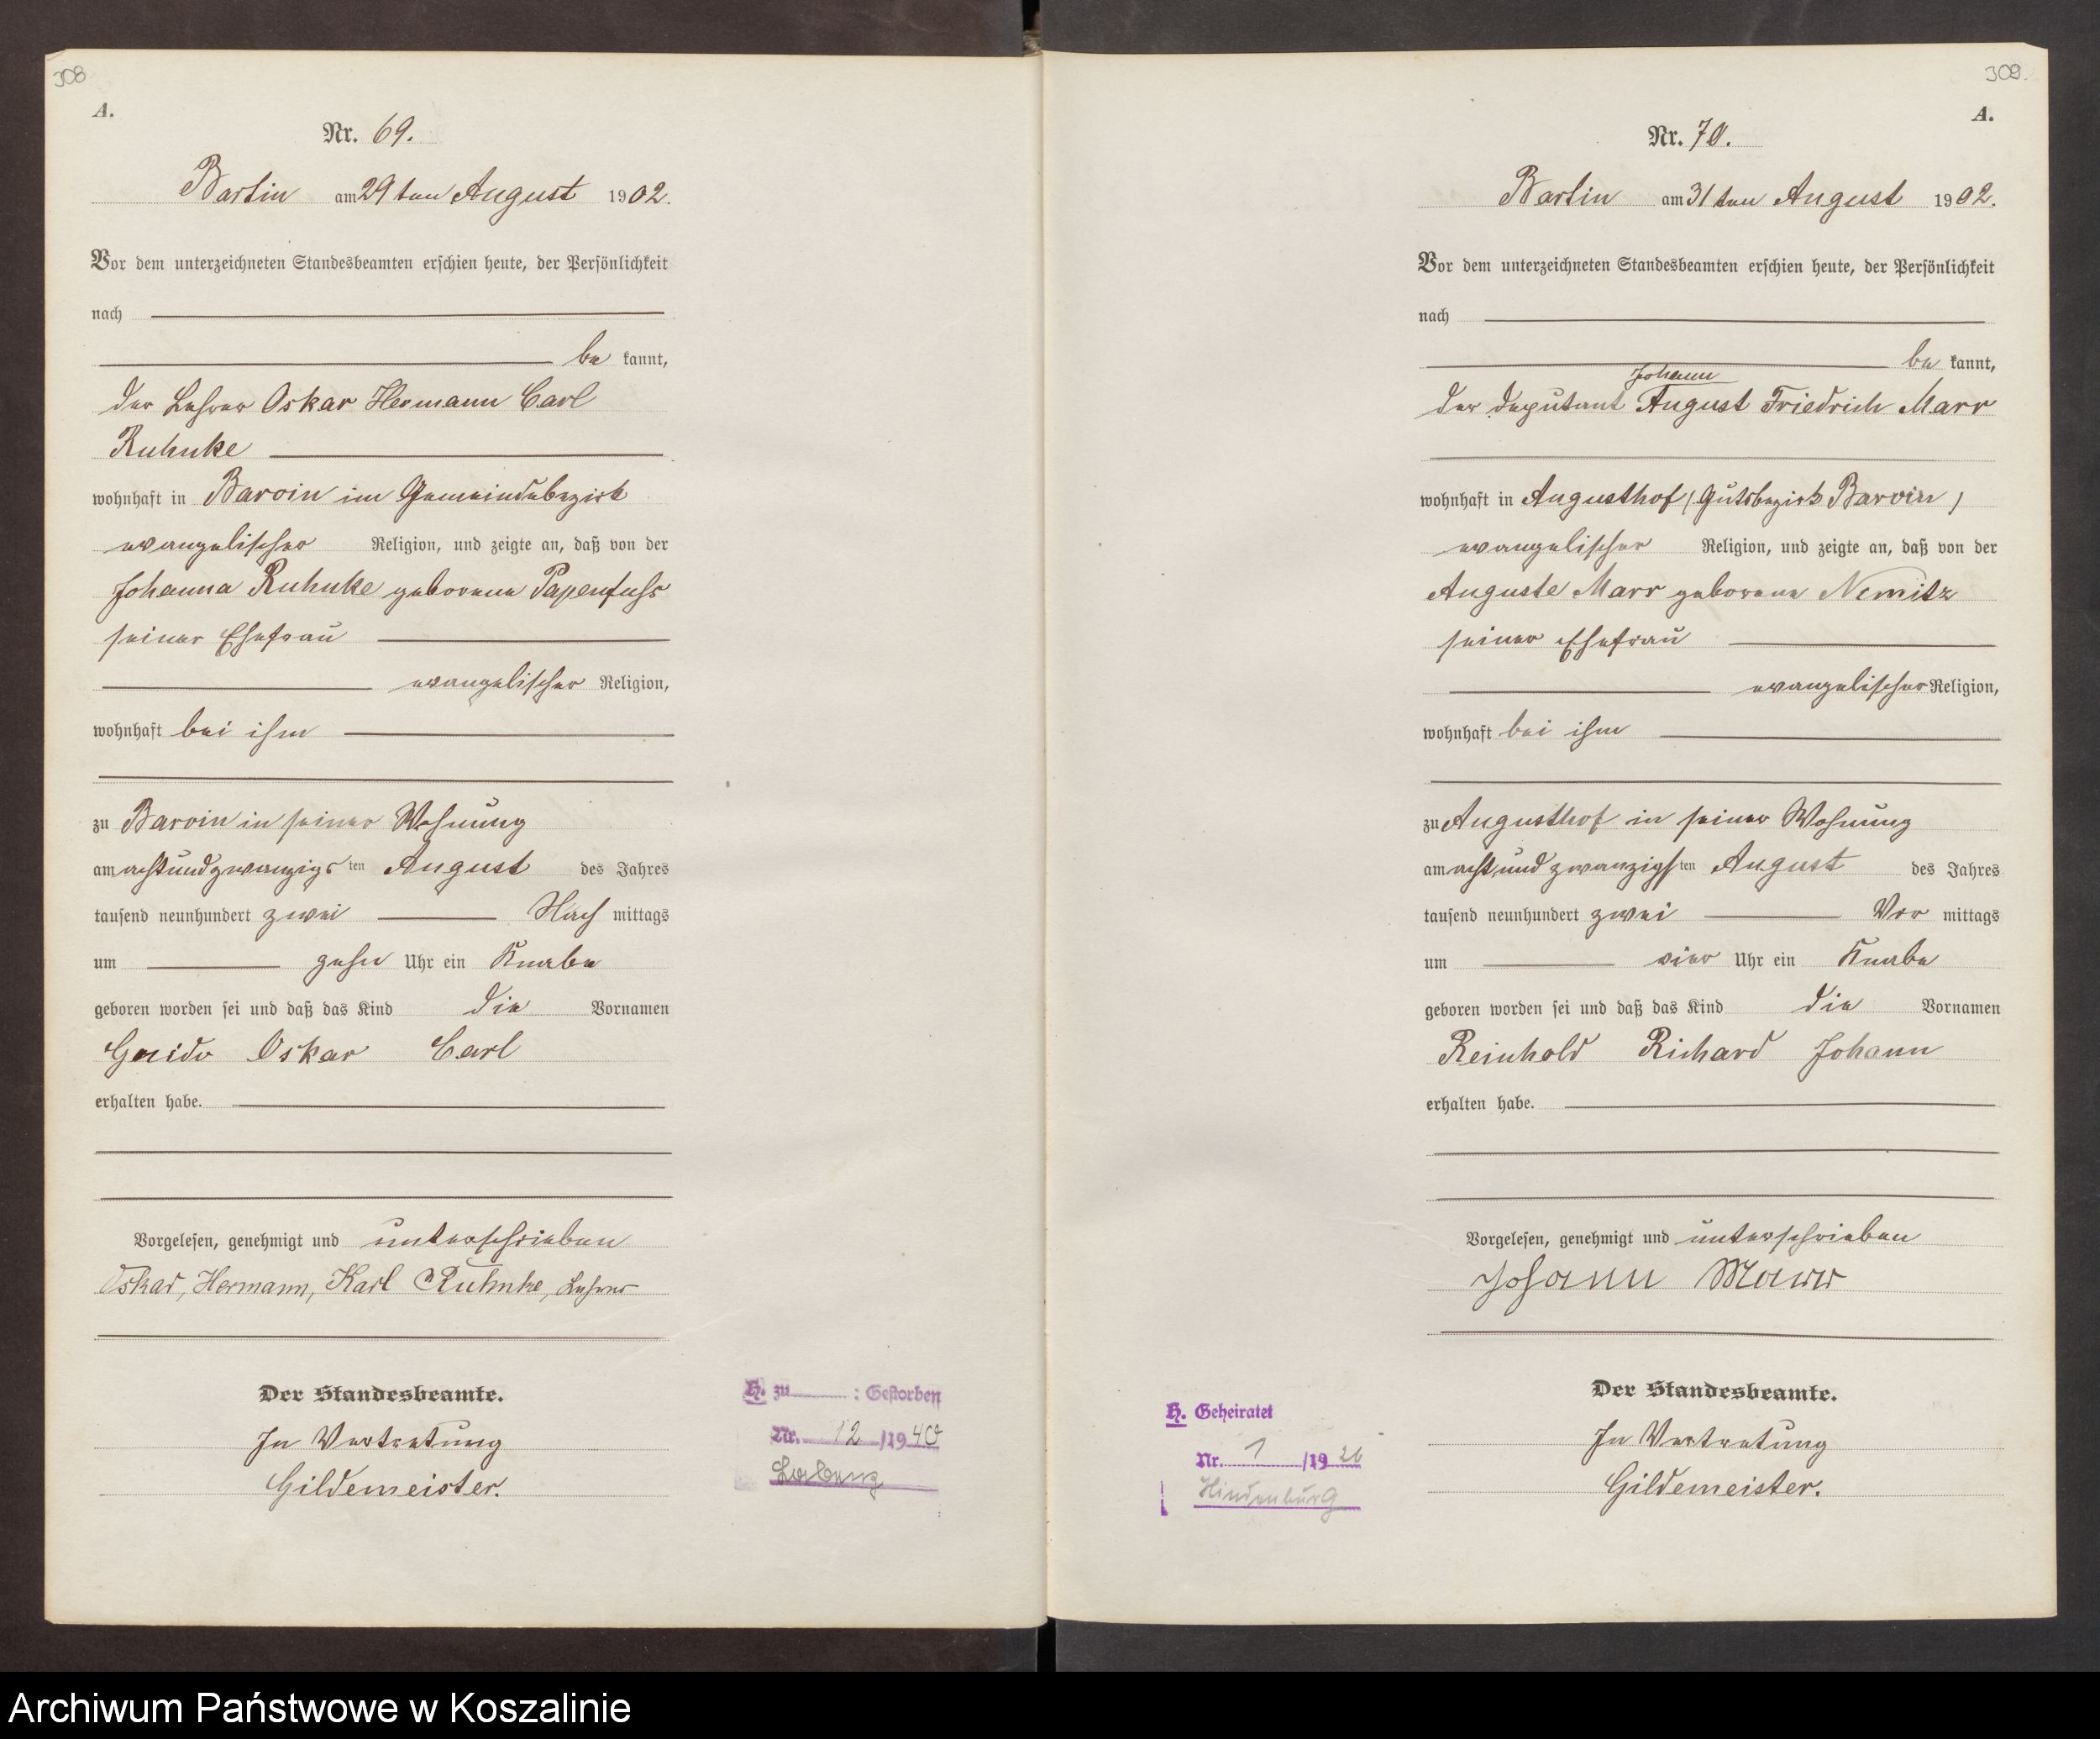 308
A.
Nr. 69.
Bartin am 29ten August 1902.
Vor dem unterzeichneten Standesbeamten erschien heute, der Persönlichkeit
nach
be kannt,
der Lehrer Oskar Hermann Carl
Ruhnke
wohnhaft in Barvin im Gemeindebezirk
evangelischer Religion, und zeigte an, daß von der
Johanna Ruhnke geborene Papenfuß
seiner Ehefrau
evangelischer Religion,
wohnhaft bei ihm
zu Barvin in seiner Wohnung
am achtundzwanzigsten August des Jahres
tausend neunhundert zwei Nach mittags
um zehn Uhr ein Knabe
geboren worden sei und daß das Kind die Vornamen
Guido Oskar Carl
erhalten habe.
Vorgelesen, genehmigt und unterschrieben
Oskar, Hermann, Karl Ruhnke, Lehrer
Der Standesbeamte.
In Vertretung
Gildemeister.
H. zu : Gestorben
Nr. 12 /1940
309.
A.
Nr. 70.
Bartin am 31ten August 1902.
Vor dem unterzeichneten Standesbeamten erschien heute, der Persönlichkeit
nach
be kannt,
Johann
der Deputant August Friedrich Marr
wohnhaft in Augusthof (Gutsbezirk Barvin)
evangelischer Religion, und zeigte an, daß von der
Auguste Marr geborene Nemitz
seiner Ehefrau
evangelischer Religion,
wohnhaft bei ihm
zu Augusthof in seiner Wohnung
am achtundzwanzigsten August des Jahres
tausend neunhundert zwei Vor mittags
um vier Uhr ein Knabe
geboren worden sei und daß das Kind die Vornamen
Reinhold Richard Johann
erhalten habe.
Vorgelesen, genehmigt und unterschrieben
Johann Marr
Der Standesbeamte.
In Vertretung
Gildemeister.
H. Geheiratet
Nr. 1 /1926
Hindenburg
Archiwum Państwowe w Koszalinie